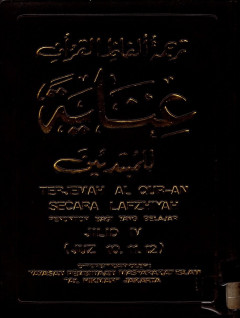 ترجمة ألفاظ القرآن
عناية
للمبتدئين
TERJEMAH AL QUR-AN
SECARA LAFZHIYAH
PENUNTUN BAGI YANG BELAJAR
JILID IV
(JUZ 10, 11, 12)
YAYASAN PEMBINAAN MASYARAKAT ISLAM
"AL HIKMAH" JAKARTA